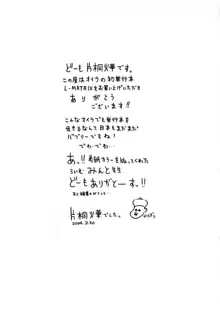 どーも 片桐火華です。
この度はオイラの初単行本
L-MATRIXをお買い上げいただき
ありがとう
ございます!!
こんなオイラでも単行本を
出せるなんて日本もまだまだ
バブリーですね!
でわでわ…
あ、!! 表紙カラーをぬってくれた
みんと先生
どーもありがとーす。!!
片桐火華でした。
2004.2.20